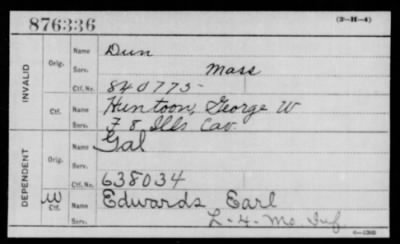 876336 (3-H-4)
INVALID
Orig. Name Dun
Serv. Mass
Ctf. No. 840775-
Ctf. Name Huntoon, George W
Serv. F 8 Ills Cav.
DEPENDENT
Orig. Name Gal
Serv.
Ctf. No. 638034
W Ctf. Name Edwards Earl
L-4-Mo Inf